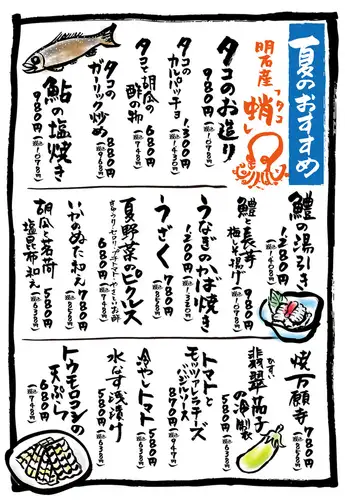 夏のおすすめ
明石産「タコ」
蛸
タコのお造り
980円(税込1078円)
タコのカルパッチョ
1,300円(税込1430円)
タコと胡瓜の酢の物
680円(税込748円)
タコのガーリック炒め
880円(税込968円)
鮎の塩焼き
980円(税込1078円)
鱧の湯引き
1,280円(税込1408円)
鱧と長芋梅しそ揚げ
980円(税込1078円)
うなぎのかば焼き
1,200円(税込1320円)
うざく
780円(税込858円)
夏野菜のピクルス
680円(税込748円)
いかのぬた和え
780円(税込858円)
胡瓜と茗荷塩昆布和え
580円(税込638円)
焼万願寺
780円(税込858円)
翡翠茄子の冷製
ひすい
580円(税込638円)
トマトとモッツァレラチーズバジルソース
870円(税込947円)
冷やしトマト
580円(税込638円)
水なす浅漬け
580円(税込638円)
トウモロコシの天ぷら
680円(税込748円)